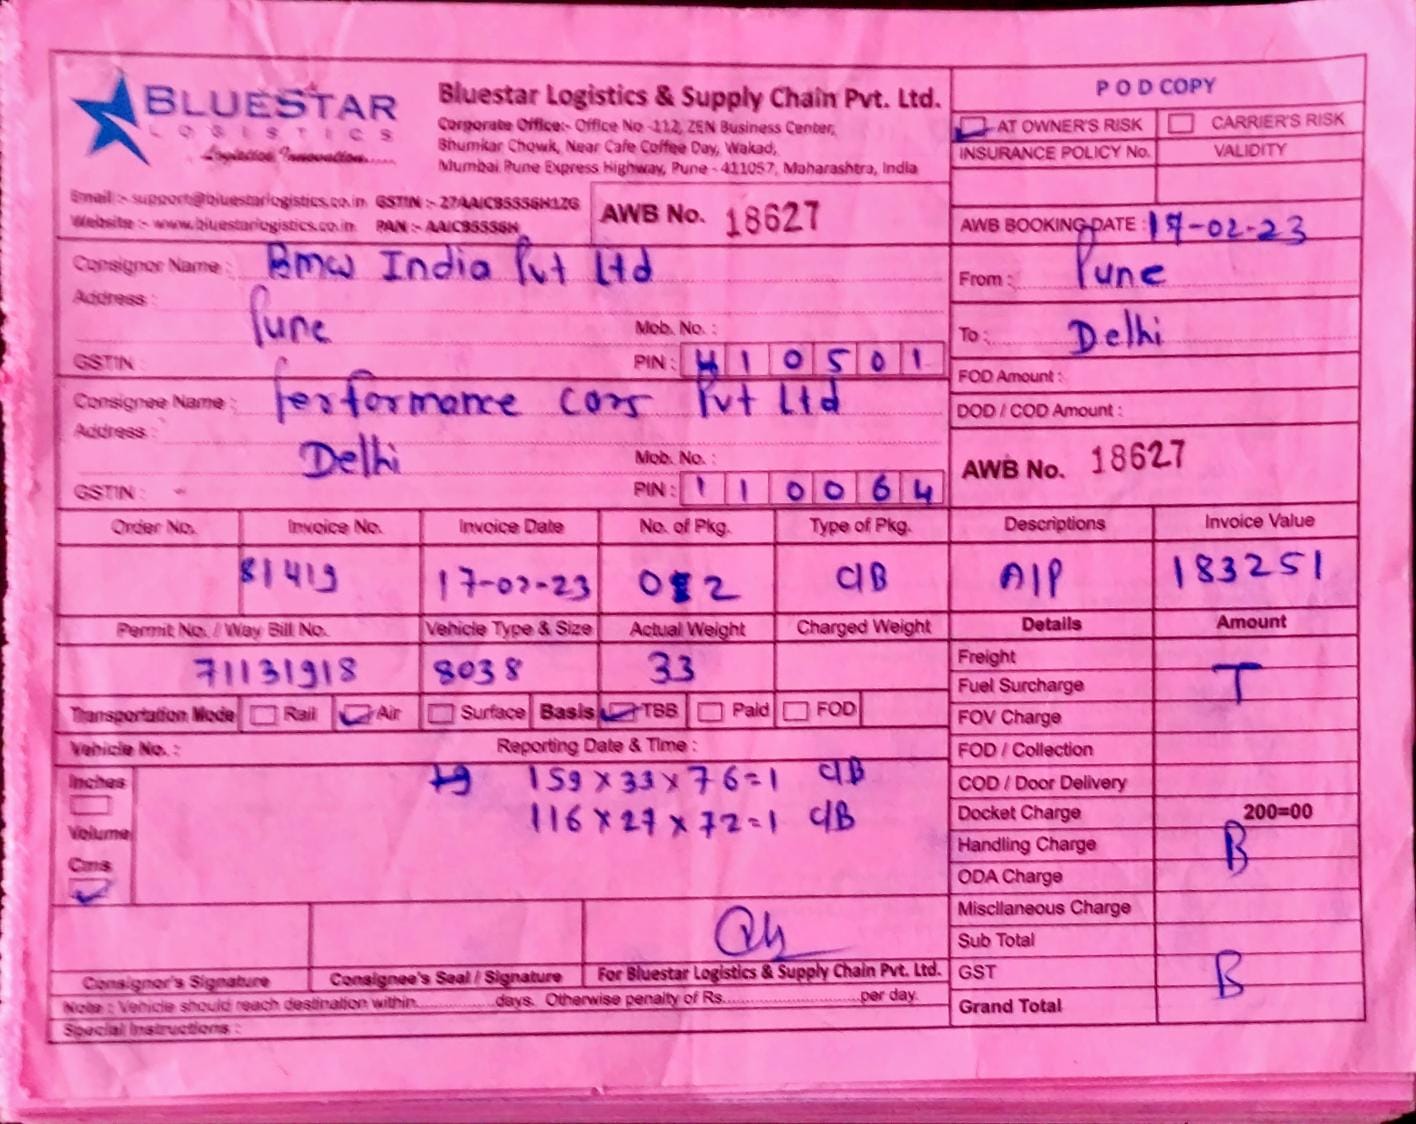 BLUESTAR
LOGISTICS
Logistics Innovation......
Bluestar Logistics & Supply Chain Pvt. Ltd.
Corporate Office:- Office No -112, ZEN Business Center,
Bhumkar Chowk, Near Cafe Coffee Day, Wakad,
Mumbai Pune Express Highway, Pune - 411057, Maharashtra, India
Email :- support@bluestarlogistics.co.in GSTIN :- 27AAICB5556H1ZG
Website :- www.bluestarlogistics.co.in PAN :- AAICB5556H
AWB No. 18627
POD COPY
AT OWNER'S RISK CARRIER'S RISK
INSURANCE POLICY No. VALIDITY
AWB BOOKING DATE : 17-02-23
From : Pune
To : Delhi
FOD Amount :
DOD / COD Amount :
AWB No. 18627
Consignor Name : Bmw India Pvt Ltd
Address :
Pune Mob. No. :
GSTIN PIN : 410501
Consignee Name : Performance Cars Pvt Ltd
Address :
Delhi Mob. No. :
GSTIN : - PIN : 110064
Order No. Invoice No. Invoice Date No. of Pkg. Type of Pkg. Descriptions Invoice Value
81419 17-02-23 02 C/B A/P 183251
Permit No. / Way Bill No. Vehicle Type & Size Actual Weight Charged Weight Details Amount
71131918 8038 33
Transportation Mode Rail Air Surface Basis TBB Paid FOD
Vehicle No. : Reporting Date & Time :
Inches 159 x 33 x 76 = 1 C/B
116 x 27 x 72 = 1 C/B
Volume
Cms
Freight
Fuel Surcharge T
FOV Charge
FOD / Collection
COD / Door Delivery
Docket Charge 200=00
Handling Charge B
ODA Charge
Miscllaneous Charge
Sub Total
GST B
Grand Total
Consignor's Signature Consignee's Seal / Signature For Bluestar Logistics & Supply Chain Pvt. Ltd.
Note : Vehicle should reach destination within...............days. Otherwise penalty of Rs..........................per day.
Special Instructions :